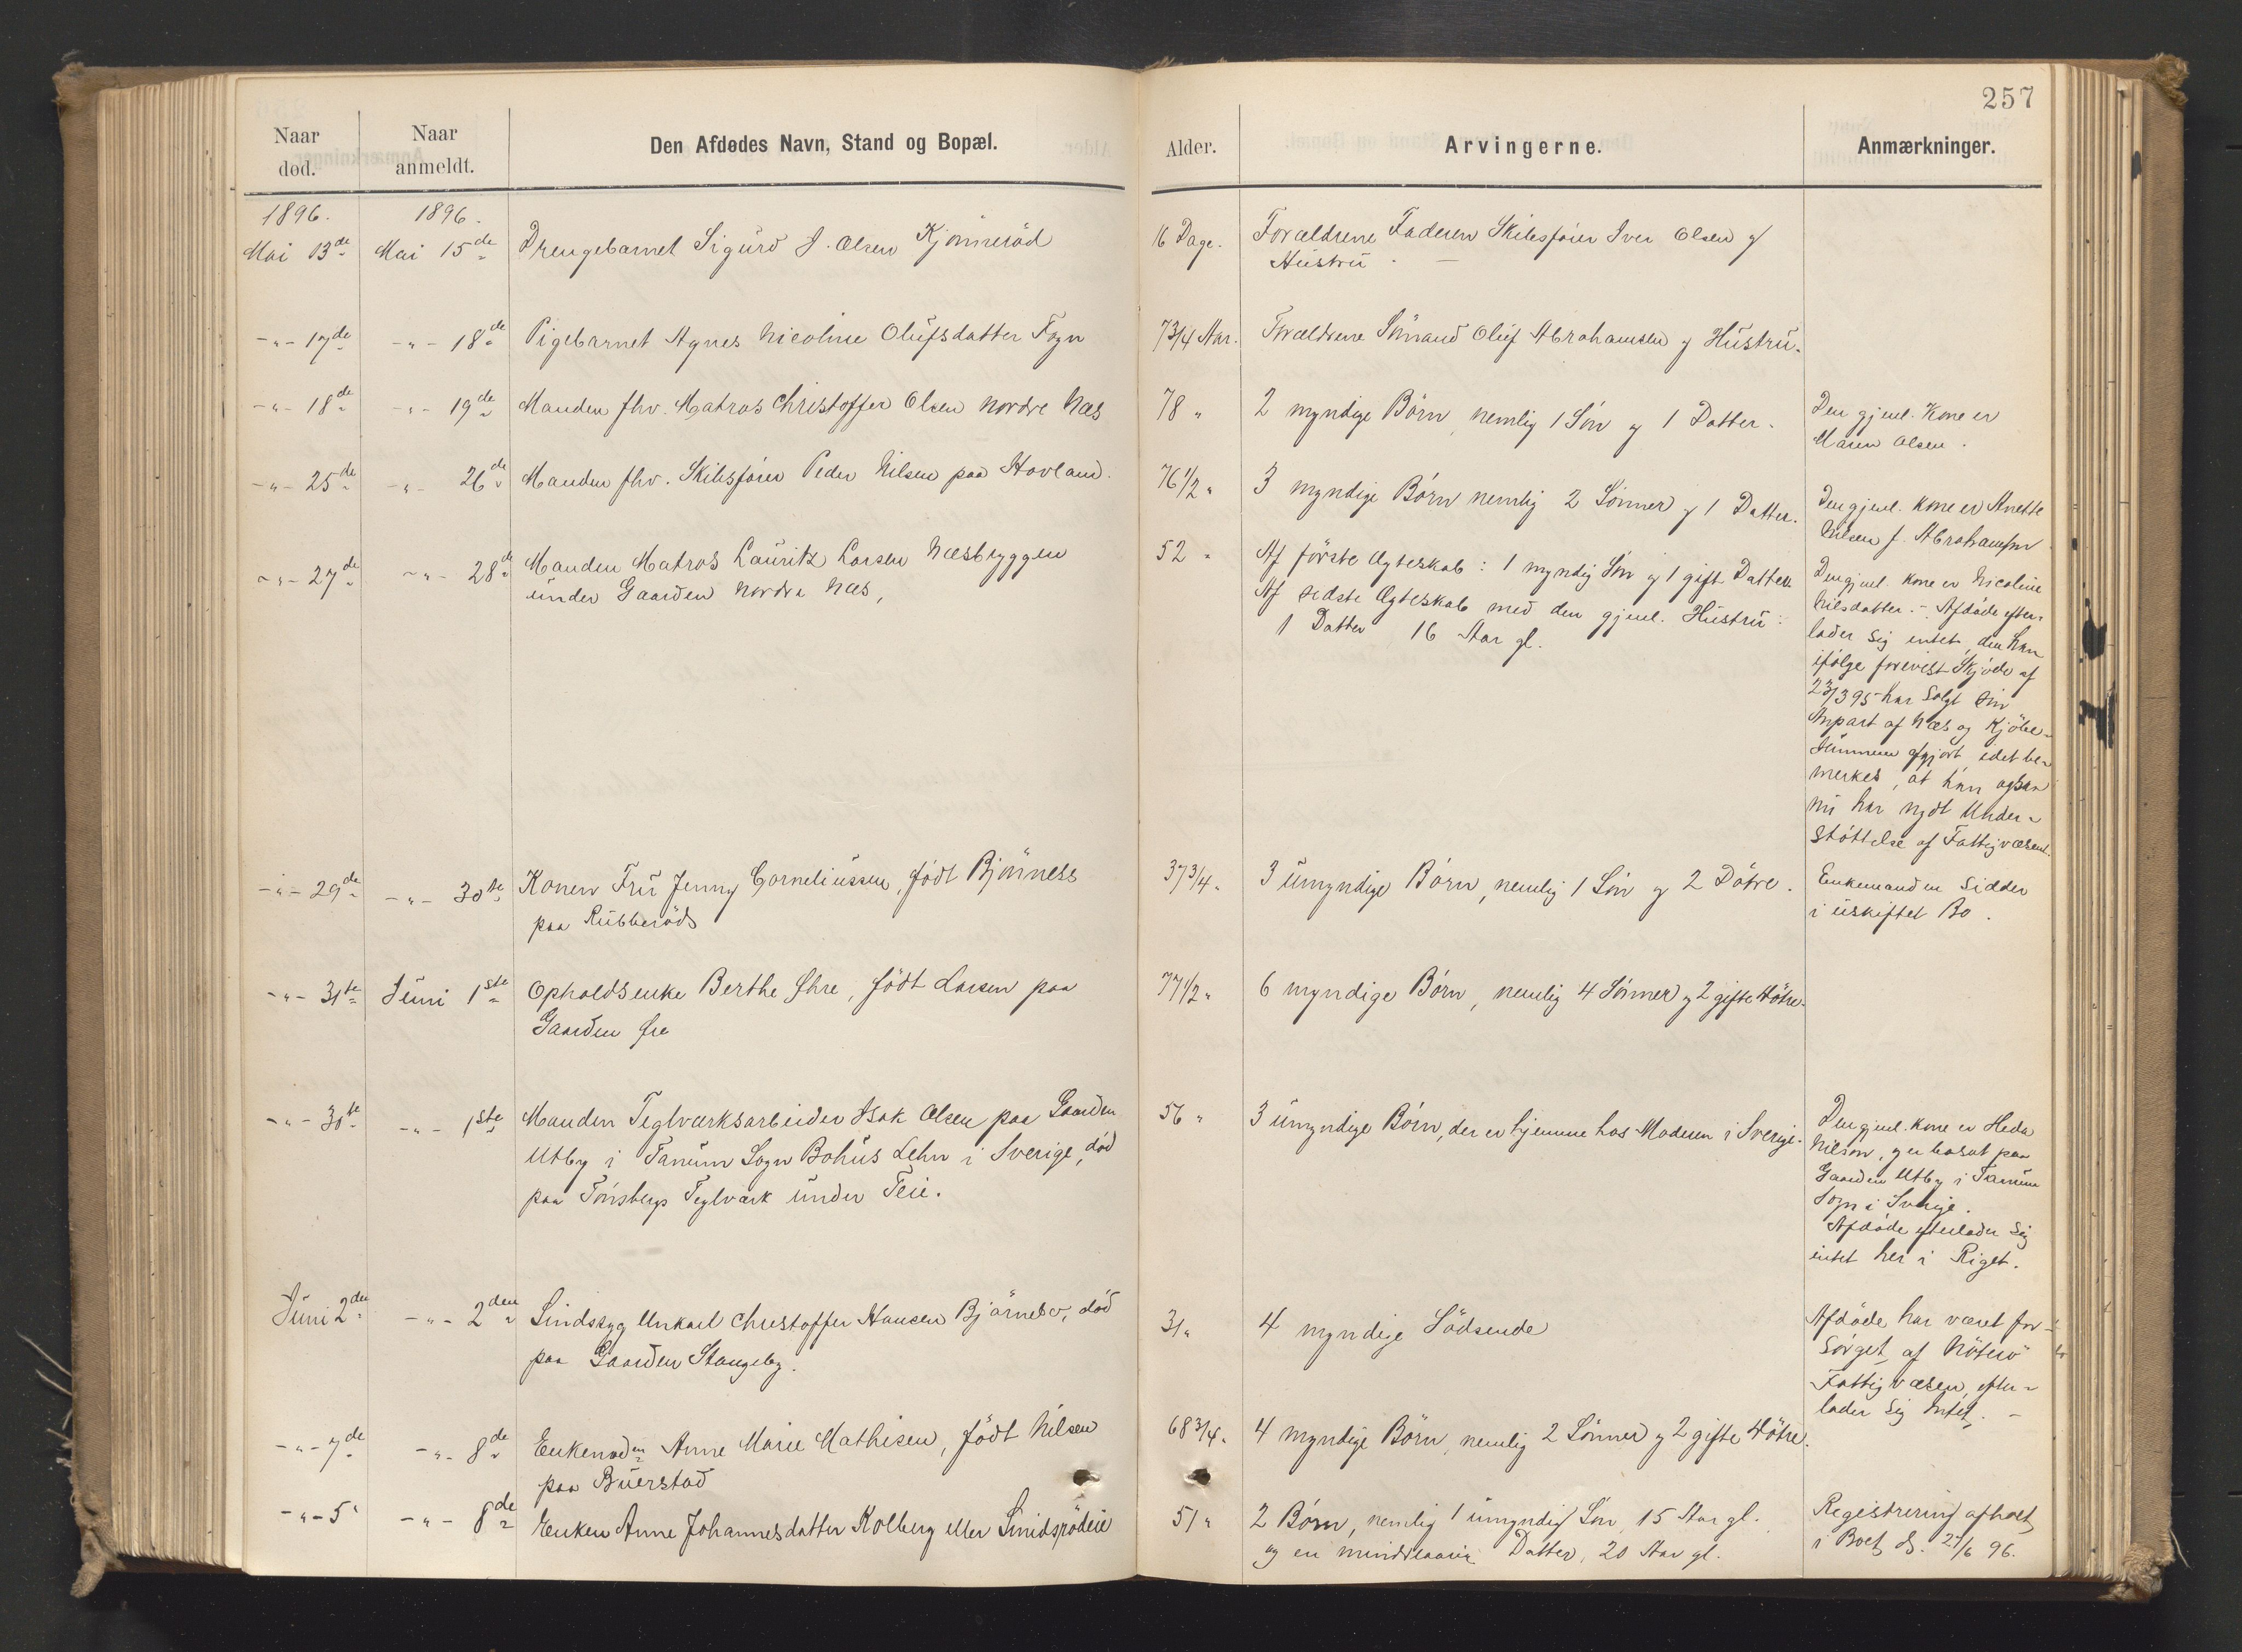 257
Naar død. Naar anmeldt. Den Afdødes Navn, Stand og Bopæl. Alder. Arvingerne. Anmærkninger.
1896. 1896.
Mai 13de Mai 15de Drengebarnet Sigurd J. Olsen Kjønnerød 16 Dage. Forældrene Faderen Skibsfører Iver Olsen og
Hustru.
-"- 17de -"- 18de Pigebarnet Agnes Nicoline Olufsdatter Fogn 7 3/4 Aar. Forældrene Sømand Oluf Abrahamsen og Hustru.
-"- 18de -"- 19de Manden fhv. Matros Christoffer Olsen Nordre Næs 78 " 2 myndige Børn, nemlig 1 Søn og 1 Datter. Den gjenl. Kone er
Maren Olsen.
-"- 25de -"- 26de Manden fhv. Skibsfører Peder Nilsen paa Hovland. 76 1/2 " 3 myndige Børn nemlig 2 Sønner og 1 Datter. Den gjenl. Kone er Anette
Nilsen f. Abrahamsen
-"- 27de -"- 28de Manden Matros Lauritz Larsen Næsbryggen
under Gaarden Nordre Næs,
52 " Af første Ægteskab: 1 myndig Søn og 1 gift Datter.
Af sidste Ægteskab med den gjenl. Hustru:
1 Datter 16 Aar gl.
Den gjenl. Kone er Nicoline
Nilsdatter. - Afdøde efter-
lader sig intet, den han
ifølge forevist Skjøde af
23/3 95 har solgt sin
Anpart af Næs og Kjøbe-
summen opgjort, idet be-
merkes, at han ogsaa
nu har nydt Under-
støttelse af Fattigvæsenet.
-"- 29de -"- 30te Konen Fru Jenny Corneliussen, født Bjønness
paa Rubberød
37 3/4 " 3 umyndige Børn, nemlig 1 Søn og 2 Døtre. Enkemanden sidder
i uskiftet Bo.
-"- 31te Juni 1ste Opholdsenke Berthe Øhre, født Larsen paa
Gaarden Øre
77 1/2 " 6 myndige Børn, nemlig 4 Sønner og 2 gifte Døtre.
-"- 30te -"- 1ste Manden Teglværksarbeider Isak Olsen paa Gaarden
Utby i Tanum Sogn Bohus Lehn i Sverige, død
paa Tønsbergs Teglværk under Teie.
56 " 3 umyndige Børn, der er hjemme hos Moderen i Sverige.
Den gjenl. Kone er Heda
Nilson, og er bosat paa
Gaarden Utby i Tanum
Sogn i Sverige.
Afdøde efterlader sig
intet her i Riget.
Juni 2den -"- 2den Sindssyg Unkarl Christoffer Hansen Bjørnebo, død
paa Gaarden Stangeby.
31 " 4 myndige Sødsende
Afdøde har været for-
sørget af Nøterø
Fattigvæsen, efter-
lader sig Intet. -
-"- 7de -"- 8de Enkemadm Anne Marie Mathisen, født Nilsen
paa Buerstad
68 3/4 " 4 myndige Børn, nemlig 2 Sønner og 2 gifte Døtre.
-"- 5. -"- 8de Enken Anne Johannesdatter Kolberg eller Smidsrødeie
51 " 2 Børn, nemlig 1 umyndig Søn, 15 Aar gl.
og en mindreaarig Datter, 20 Aar gl.
Registrering afholdt
i Boet d. 27/6 96.